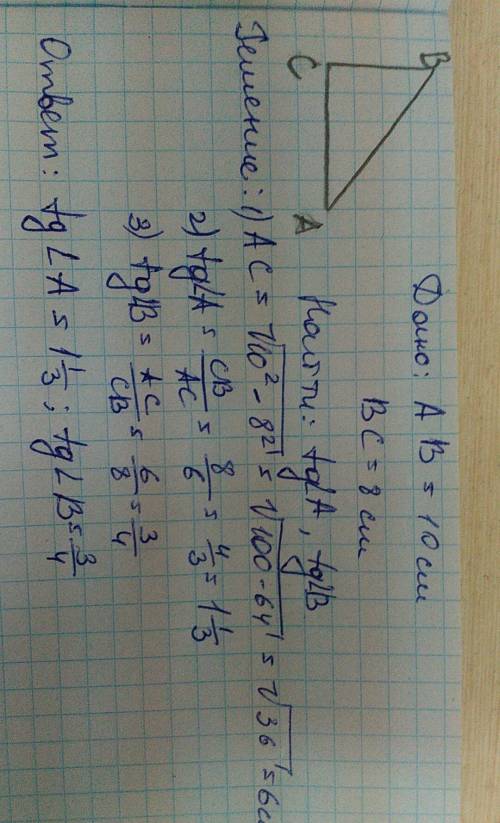 B
C
A
Дано: AB = 10 см
BC = 8 см
Найти: tg∠A, tg∠B
Решение: 1) AC = √10² - 8² = √100 - 64 = √36 = 6см
2) tg∠A = CB/AC = 8/6 = 4/3 = 1 1/3
3) tg∠B = AC/CB = 6/8 = 3/4
Ответ: tg∠A = 1 1/3; tg∠B = 3/4